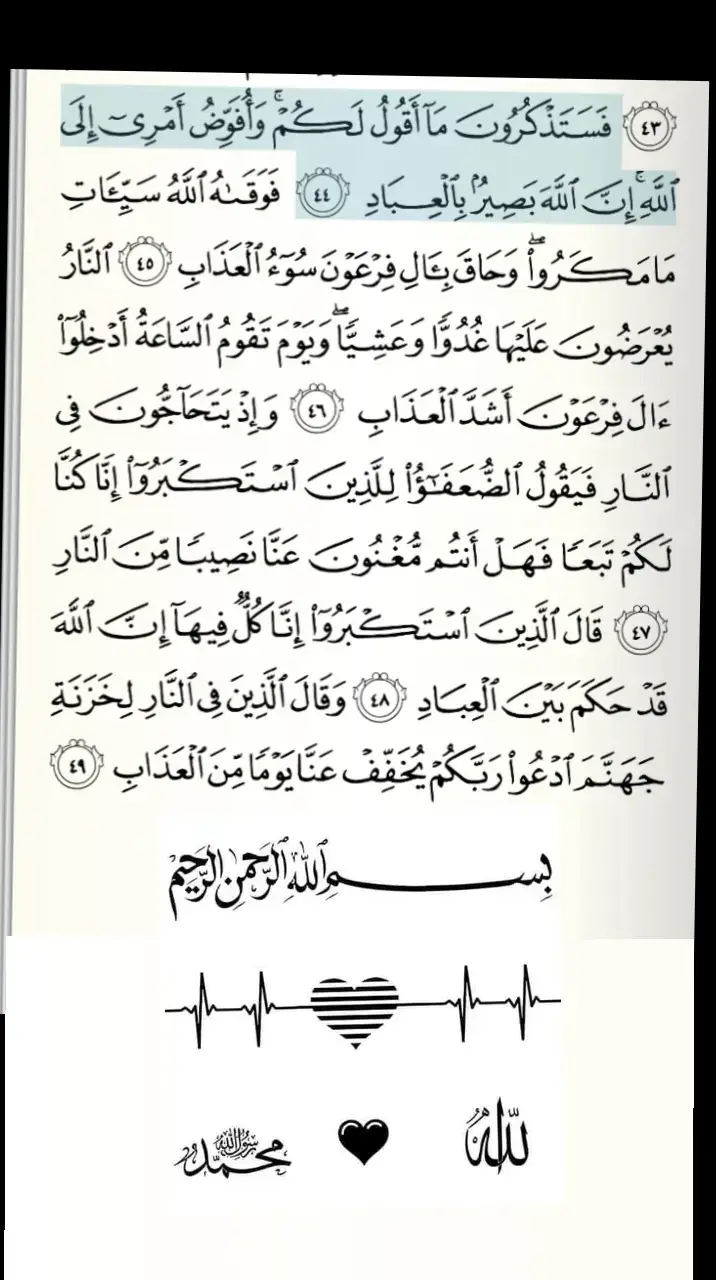 ٤٣ فَسَتَذْكُرُونَ مَآ أَقُولُ لَكُمْ ۚ وَأُفَوِّضُ أَمْرِىٓ إِلَى
ٱللَّهِ ۚ إِنَّ ٱللَّهَ بَصِيرٌۢ بِٱلْعِبَادِ ٤٤ فَوَقَىٰهُ ٱللَّهُ سَيِّـَٔاتِ
مَا مَكَرُوا۟ ۖ وَحَاقَ بِـَٔالِ فِرْعَوْنَ سُوٓءُ ٱلْعَذَابِ ٤٥ ٱلنَّارُ
يُعْرَضُونَ عَلَيْهَا غُدُوًّا وَعَشِيًّا ۖ وَيَوْمَ تَقُومُ ٱلسَّاعَةُ أَدْخِلُوٓا۟
ءَالَ فِرْعَوْنَ أَشَدَّ ٱلْعَذَابِ ٤٦ وَإِذْ يَتَحَآجُّونَ فِى
ٱلنَّارِ فَيَقُولُ ٱلضُّعَفَـٰٓؤُا۟ لِلَّذِينَ ٱسْتَكْبَرُوٓا۟ إِنَّا كُنَّا
لَكُمْ تَبَعًا فَهَلْ أَنتُم مُّغْنُونَ عَنَّا نَصِيبًا مِّنَ ٱلنَّارِ
٤٧ قَالَ ٱلَّذِينَ ٱسْتَكْبَرُوٓا۟ إِنَّا كُلٌّ فِيهَآ إِنَّ ٱللَّهَ
قَدْ حَكَمَ بَيْنَ ٱلْعِبَادِ ٤٨ وَقَالَ ٱلَّذِينَ فِى ٱلنَّارِ لِخَزَنَةِ
جَهَنَّمَ ٱدْعُوا۟ رَبَّكُمْ يُخَفِّفْ عَنَّا يَوْمًا مِّنَ ٱلْعَذَابِ ٤٩
بِسْمِ ٱللَّهِ ٱلرَّحْمَنِ ٱلرَّحِيمِ
ٱللَّهُ محمد رسول الله